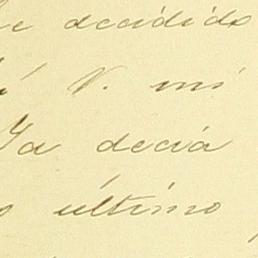 he decidido
á V. mi
Ya decia
o último